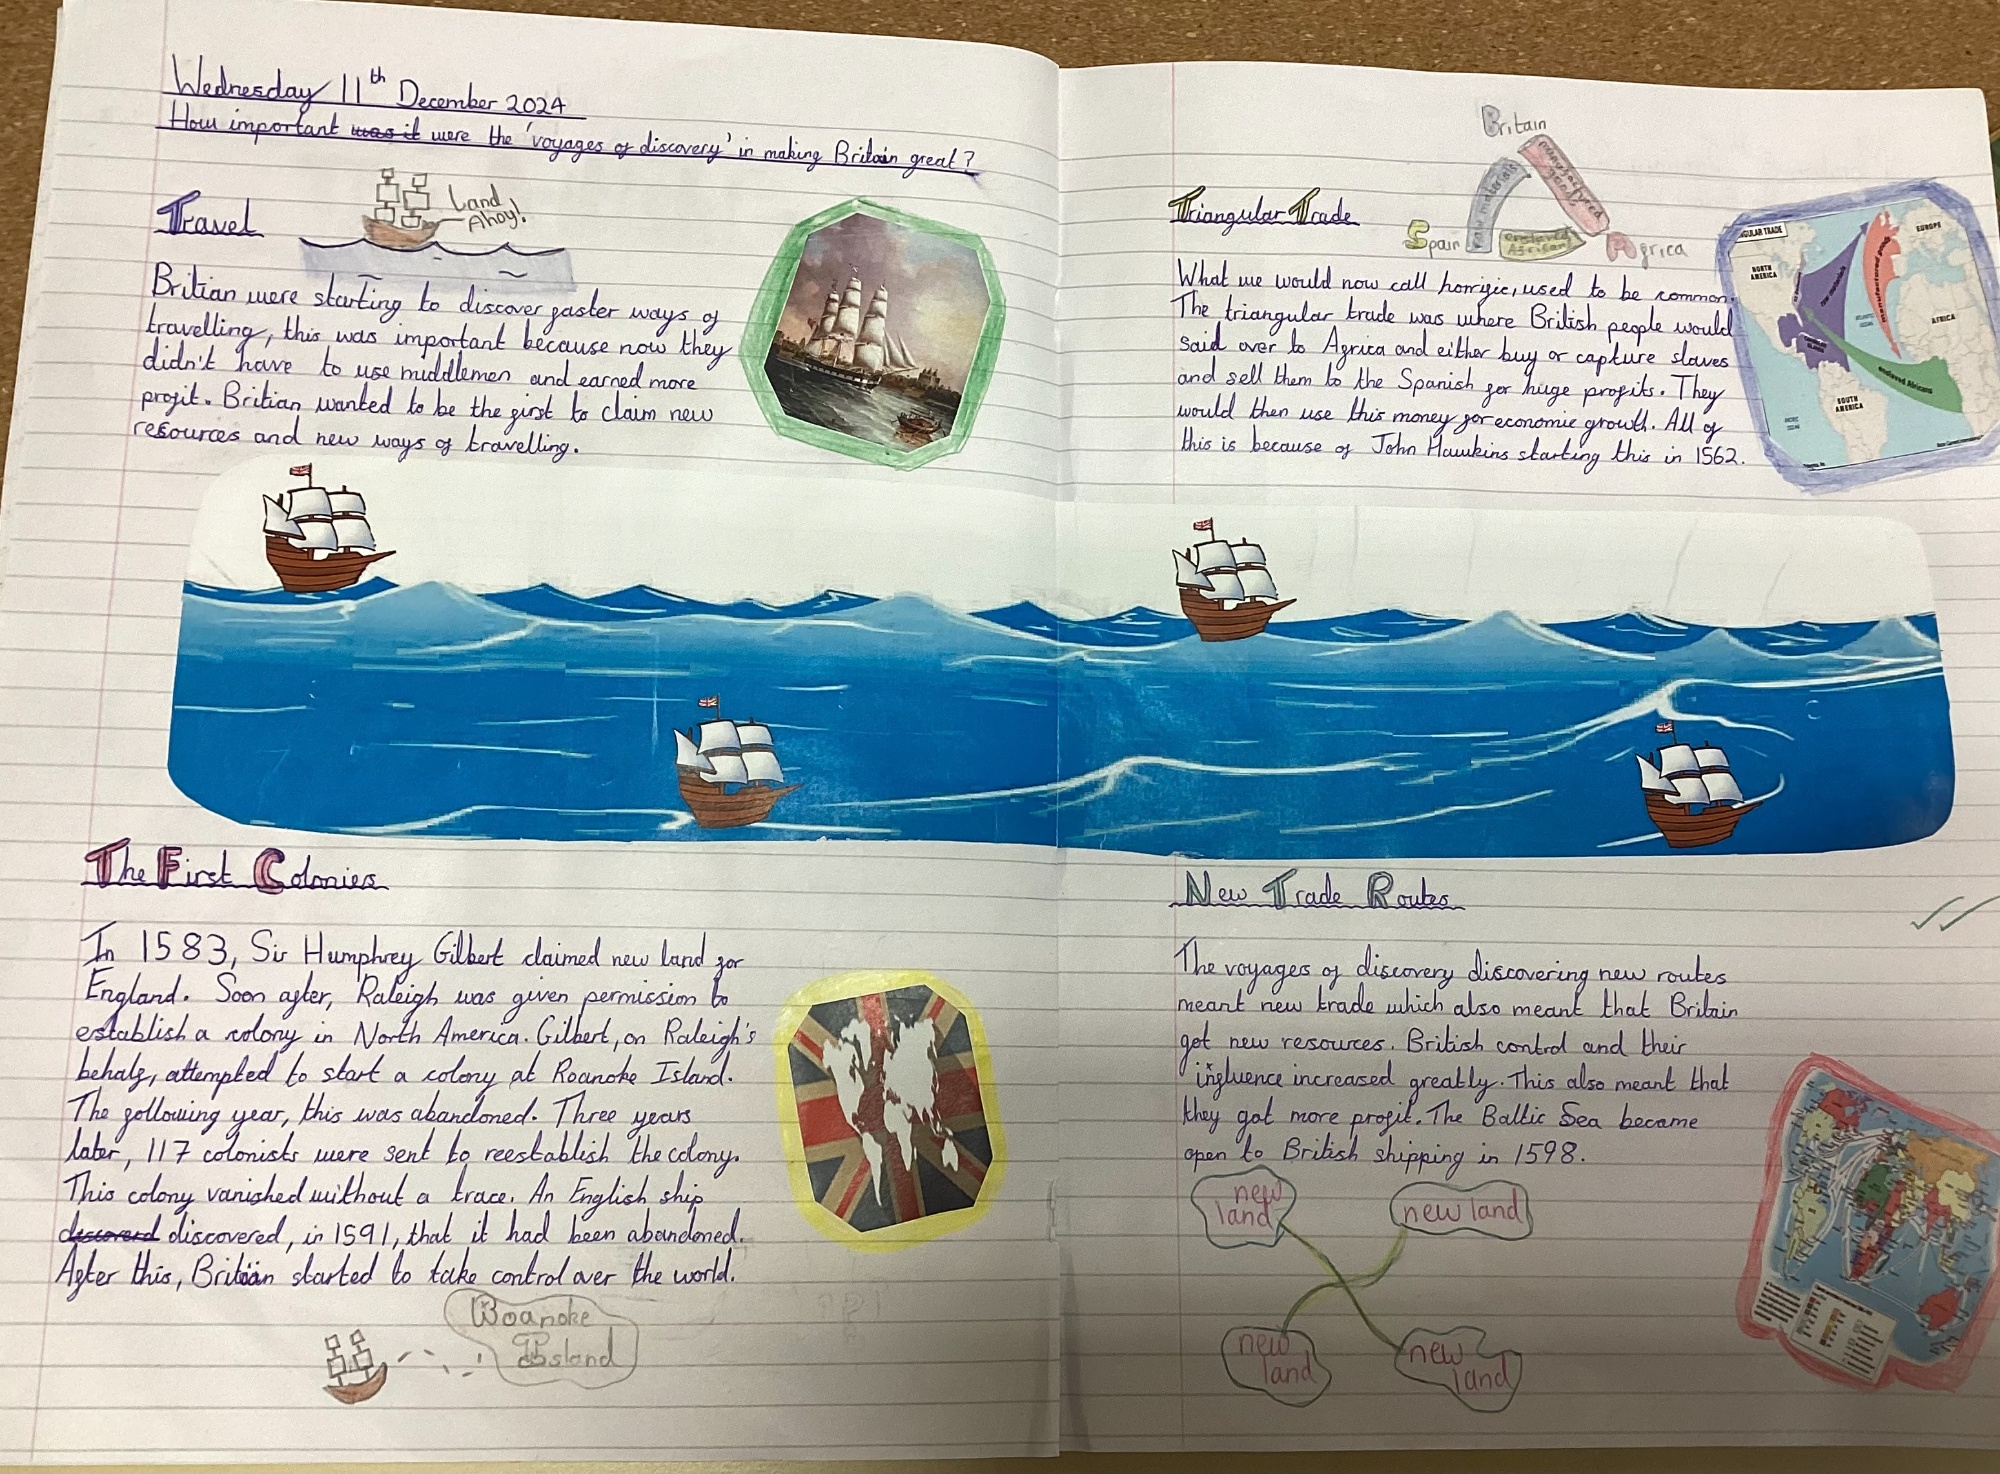 Wednesday 11th December 2024
How important was it were the 'voyages of discovery' in making Britain great?
Travel
Land
Ahoy!
Britian were starting to discover faster ways of
travelling, this was important because now they
didn't have to use middlemen and earned more
profit. Britian wanted to be the first to claim new
resources and new ways of travelling.
The First Colonies
In 1583, Sir Humphrey Gilbert claimed new land for
England. Soon after, Raleigh was given permission to
establish a colony in North America. Gilbert, on Raleigh's
behalf, attempted to start a colony at Roanoke Island.
The following year, this was abandoned. Three years
later, 117 colonists were sent to reestablish the colony.
This colony vanished without a trace. An English ship
discoverd discovered, in 1591, that it had been abandoned.
After this, Britain started to take control over the world.
Roanoke
Island
Britain
raw materials
manufactured
goods
Spain
enslaved
Africans
Africa
Triangular Trade
What we would now call horrific, used to be common.
The triangular trade was where British people would
sail over to Africa and either buy or capture slaves
and sell them to the Spanish for huge profits. They
would then use this money for economic growth. All of
this is because of John Hawkins starting this in 1562.
TRIANGULAR TRADE
NORTH
AMERICA
EUROPE
raw materials
manufactured goods
AFRICA
enslaved Africans
SOUTH
AMERICA
New Trade Routes
The voyages of discovery discovering new routes
meant new trade which also meant that Britain
got new resources. British control and their
influence increased greatly. This also meant that
they got more profit. The Baltic Sea became
open to British shipping in 1598.
new
land
new land
new
land
new
land